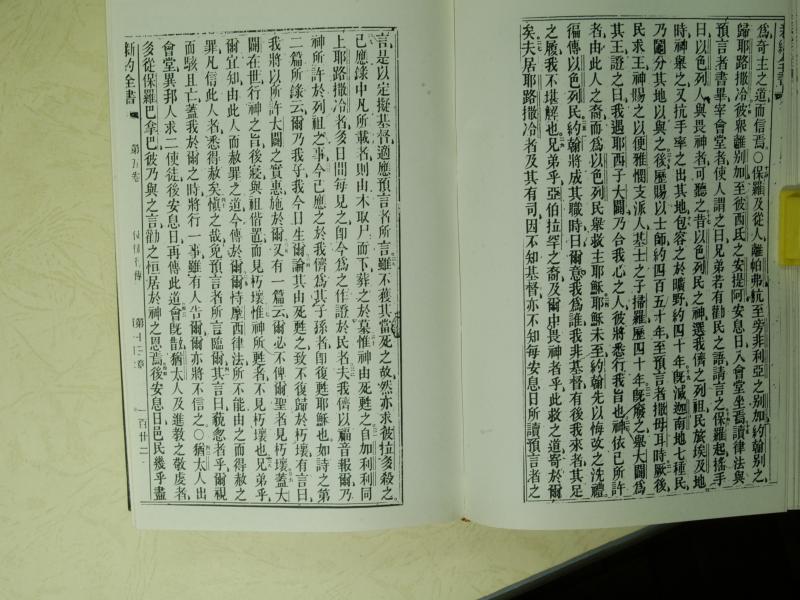 新約全書
為奇主之道而信焉○保羅及從人離帕弗航至旁非利亞之別加約翰別之
歸耶路撒冷彼衆離別加至彼西氏之安提阿安息日入會堂坐焉讀律法與
預言者書畢宰會堂者使人謂之曰兄弟若有勸民之語請言之保羅起搖手
曰以色列人與畏神者可聽之昔以色列民之神選我儕之列祖民旅埃及地
時神衆之又抗手率之出其地包容之於曠野約四十年旣滅迦南地七種民
乃鬮分其地以與之後歷賜以士師約四百五十年至預言者撒母耳時厥後
民求王神賜之以便雅憫支派人基士之子掃羅歷四十年旣廢之舉大闢為
其王證之曰我遇耶西子大闢乃合我心之人彼將悉行我旨也神依已所許
者由此人之裔而為以色列民舉救主耶穌耶穌未至約翰先以悔改之洗禮
徧傳以色列民約翰將成其職時曰爾意我為誰我非基督有後我來者其足
之履我不堪解也兄弟乎亞伯拉罕之裔及爾中畏神者乎此救之道寄於爾
矣夫居耶路撒冷者及其有司因不知基督亦不知每安息日所讀預言者之
言是以定擬基督適應預言者所言雖不獲其當死之故然亦求彼拉多殺之
已應錄中凡所載者則由木取尸而下葬之於墓惟神由死甦之自加利利同
上耶路撒冷者多日間每見之卽今為之作證於民者夫我儕以福音報爾乃
神所許於列祖之事今已應之於我儕為其子孫者卽復甦耶穌也如詩之第
二篇所錄云爾乃我子我今日生爾論其由死甦之致不復歸於朽壞有言曰
我將以所許大闢之實惠施於爾又有一篇云爾必不俾爾聖者見朽壞蓋大
闢在世行神之旨後寢與祖偕置而見朽壞惟神所甦者不見朽壞也兄弟乎
爾宜知由此人而赦罪之道今傳於爾爾恃摩西律法所不能由之而得赦之
罪凡信此人者悉得赦矣愼之哉免預言者所言臨爾其言曰藐忽者乎爾視
而駭且亡蓋我於爾之時將行一事雖有人告爾爾亦將不信之○猶太人出
會堂異邦人求二使徒後安息日再傳此道會旣散猶太人及進敎之敬虔者
多從保羅巴拿巴彼乃與之言勸之恒居於神之恩焉後安息日邑民幾乎盡
新約全書 第五卷 使徒行傳 第十三章 一百廿二